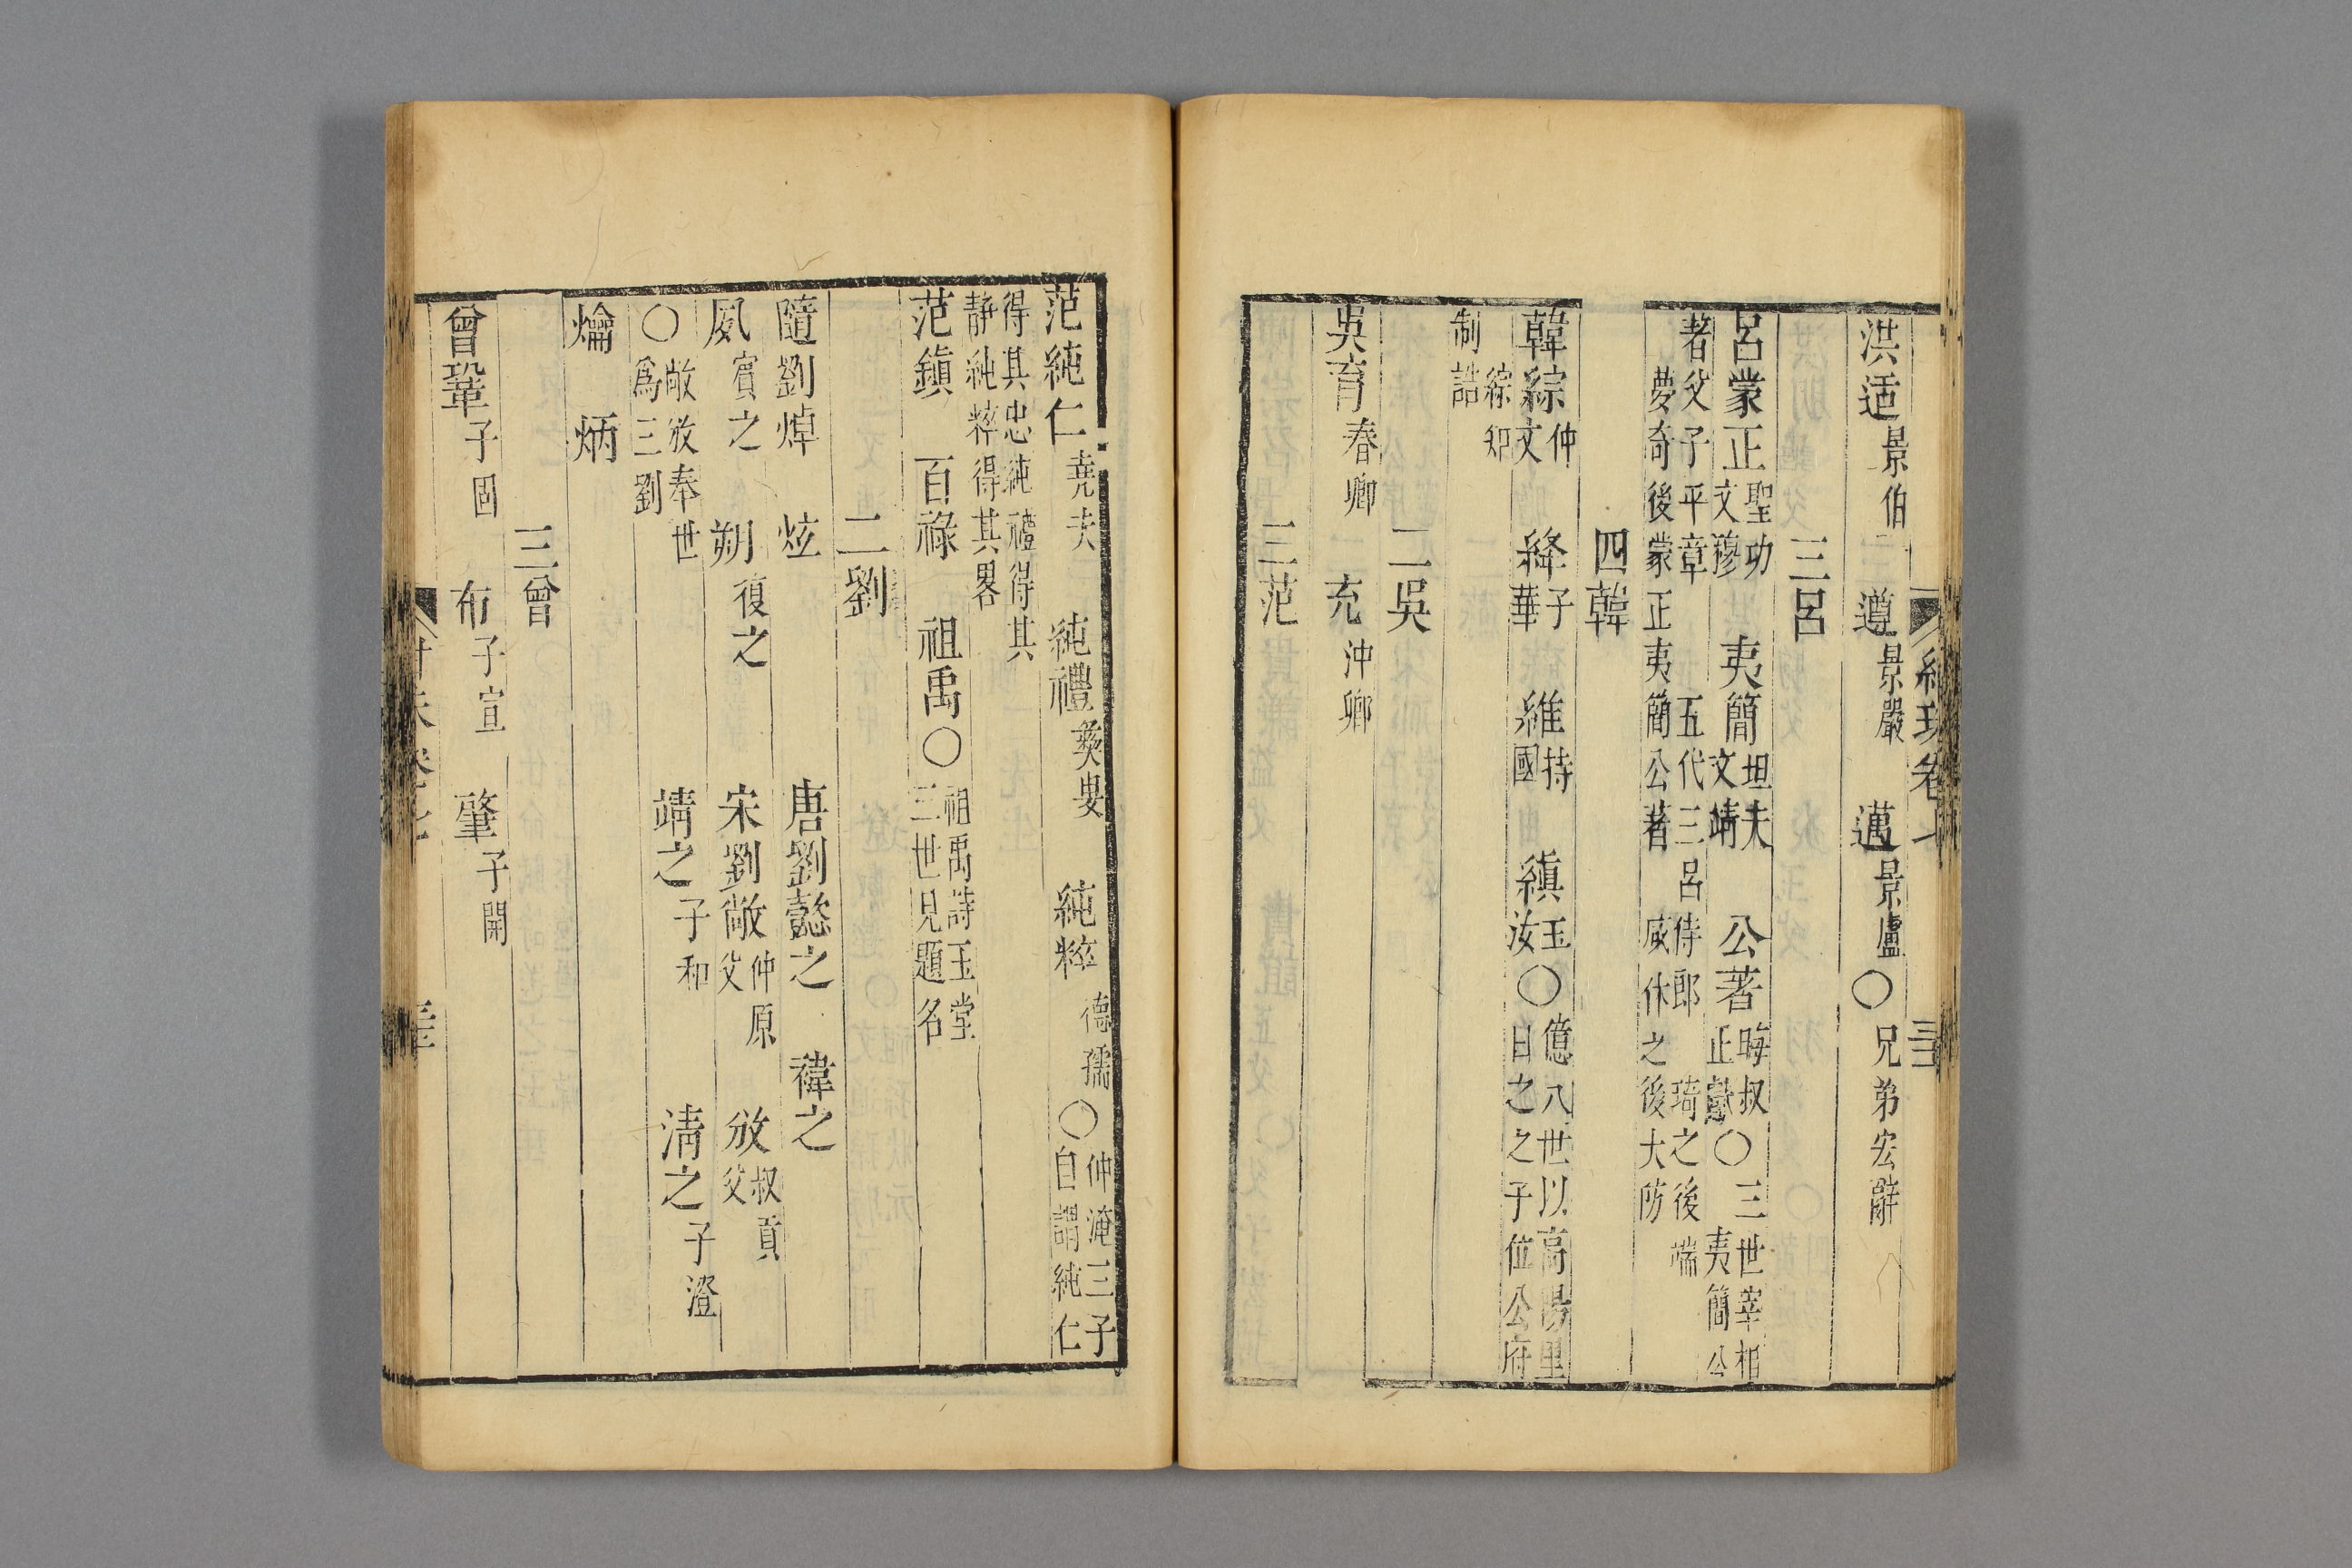 洪适景伯　遵景嚴　邁景盧〇兄弟宏辭
三呂
呂蒙正聖功文穆　夷簡坦夫文靖　公著晦叔正獻〇三世宰相夷簡公
著父子平章　五代三呂侍郎　琦之後端
夢奇後蒙正夷簡公著　咸休之後大防
四韓
韓綜仲文　絳子華　維持國　縝玉汝〇億八世以高陽里日之之子位公府
綜知制誥
二吳
吳育春卿　充沖卿
三范
范純仁堯夫　純禮彝叟　純粹德孺〇仲淹三子自謂純仁
得其忠純禮得其靜純粹得其畧
范鎮　百祿　祖禹〇祖禹詩玉堂三世見題名
二劉
隨劉焯　炫　唐劉懿之　禕之
夙賓之　朔復之　宋劉敞仲原父　攽叔貢父
〇敞攽奉世爲三劉　靖之子和　清之子澄
爚　炳
三曾
曾鞏子固　布子宣　肇子開